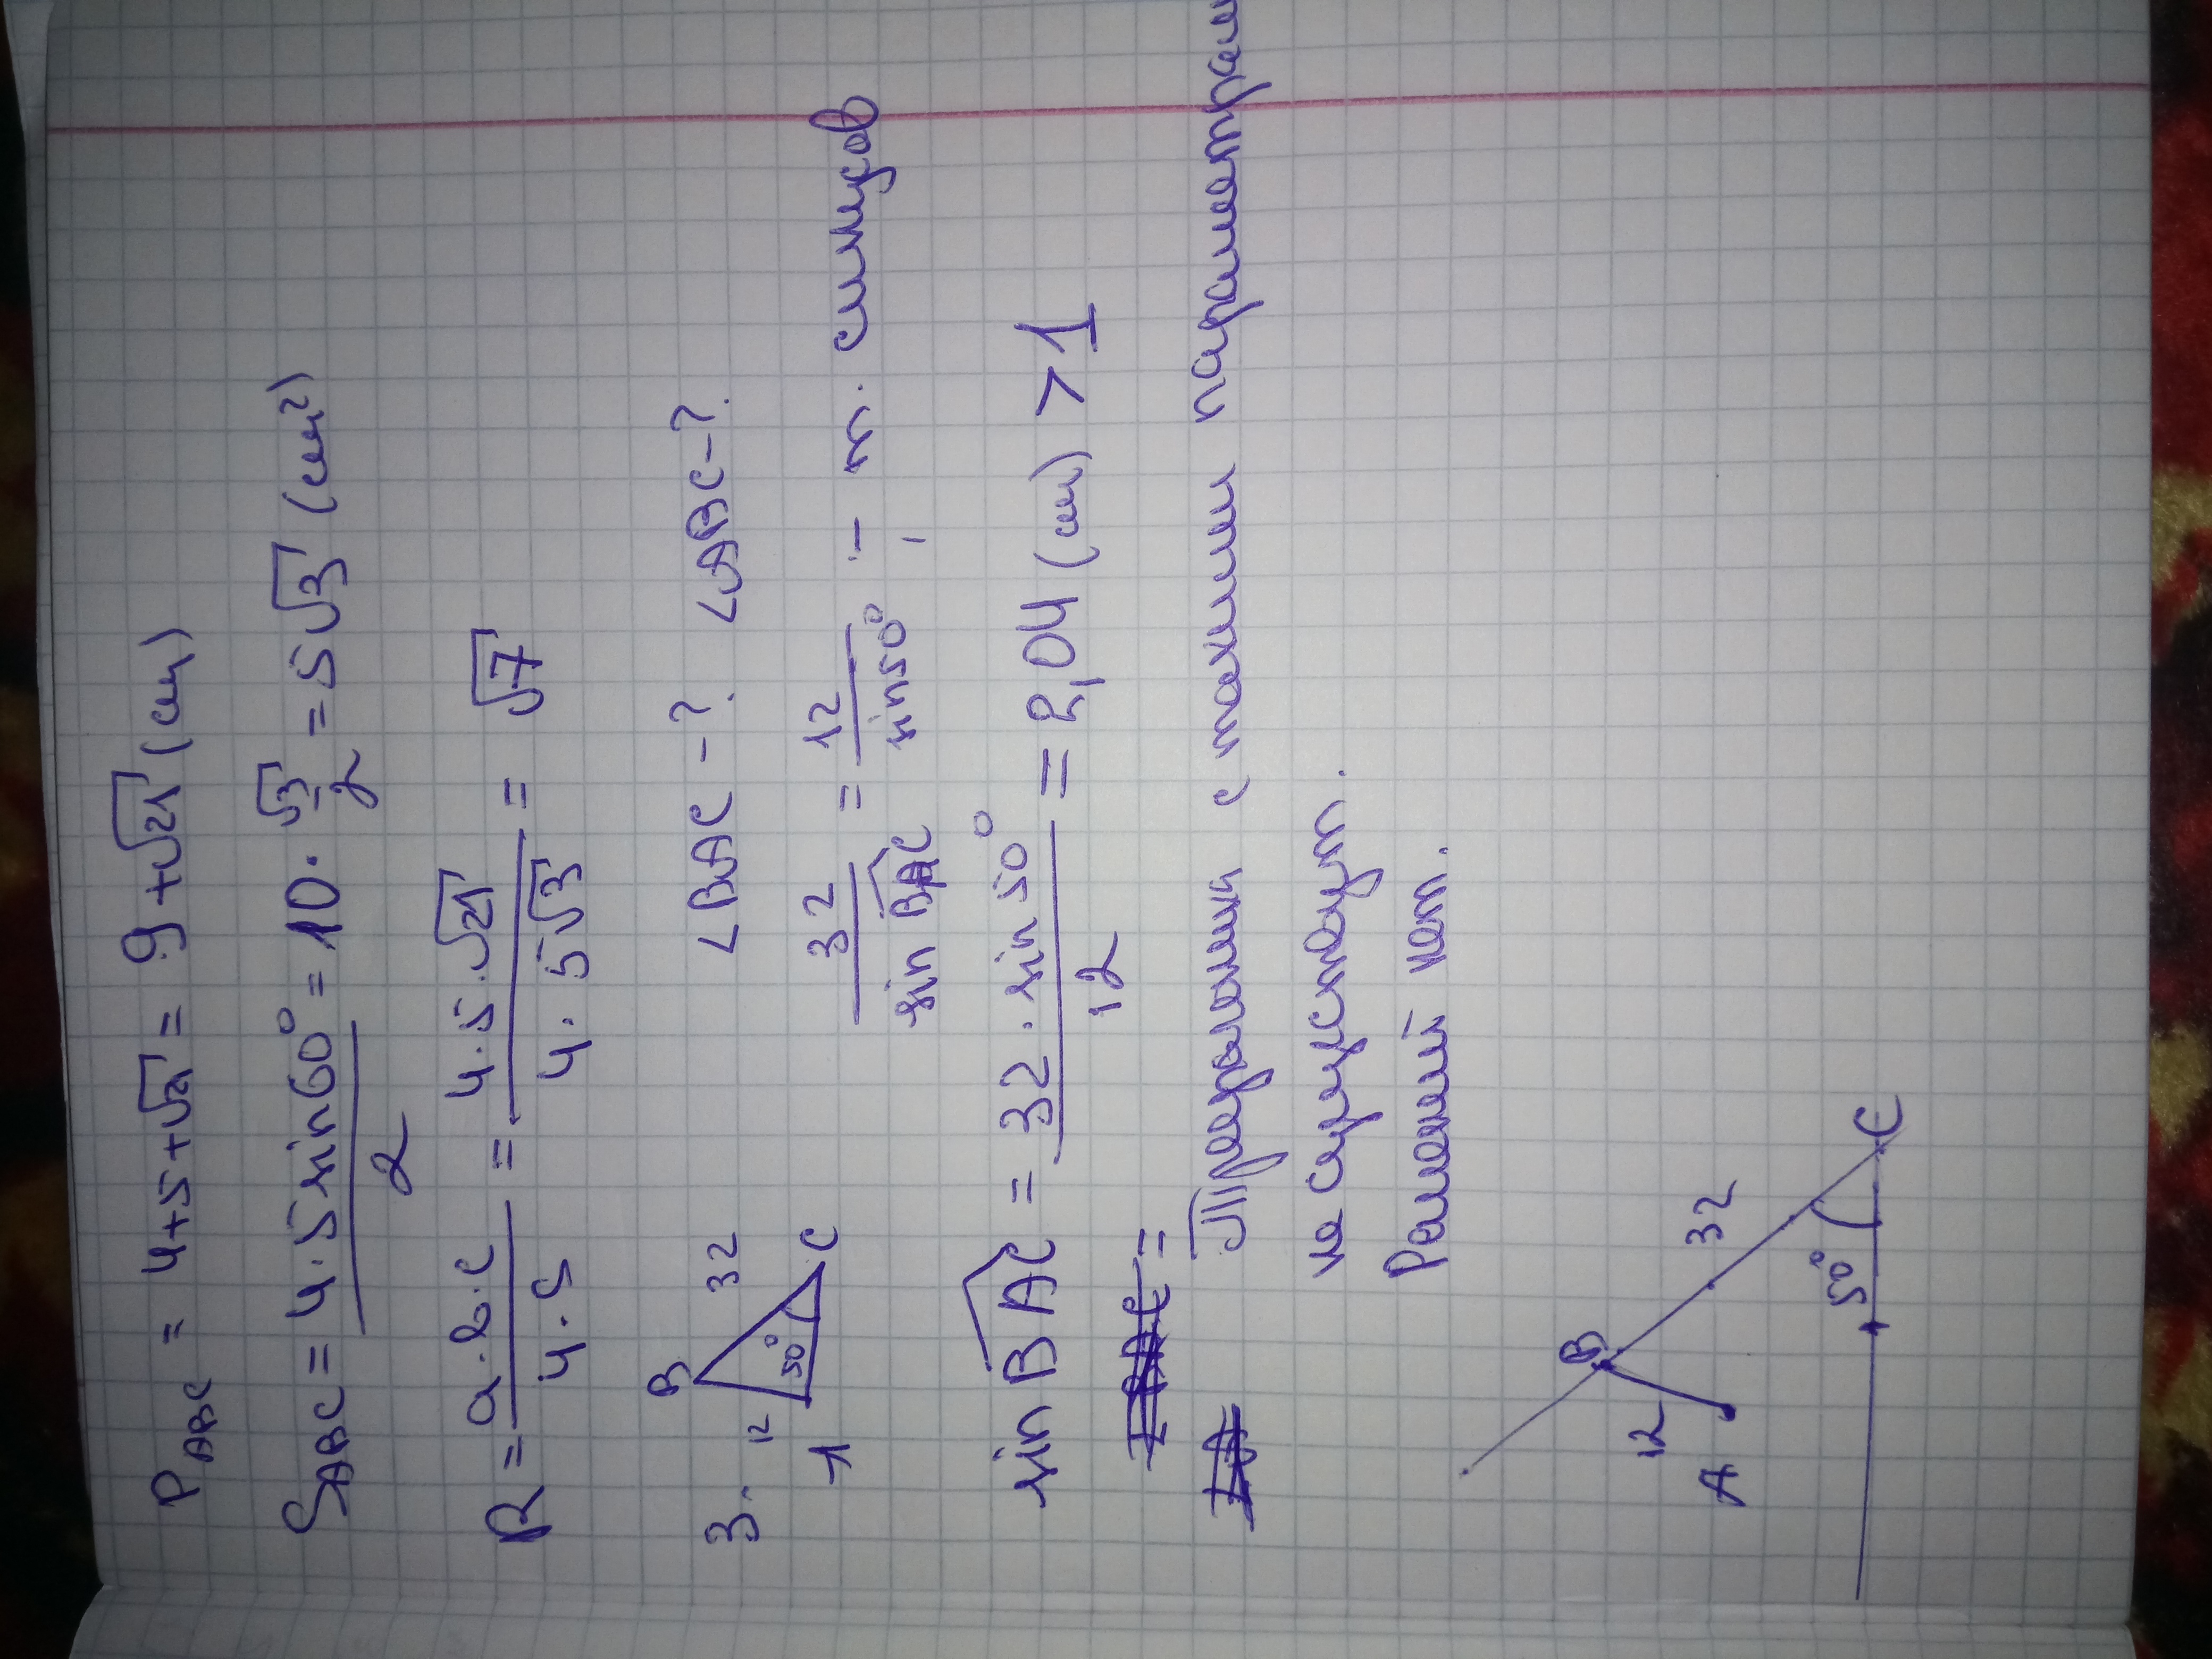 P ABC = 4+5+√21 = 9+√21 (см)
S ABC = 4·5 sin60° / 2 = 10 · √3/2 = 5√3 (см²)
R = a·b·c / 4·S = 4·5·√21 / 4·5√3 = √7
3. B 12 32 50° A C ∠BAC-? ∠ABC-?
32 / sin BAC = 12 / sin50° ; - т. синусов
sin BAC = 32·sin50° / 12 = 2,04 (см) > 1
Треугольника с такими параметрами
не существует.
Решений нет.
B
12 32
A 50° C